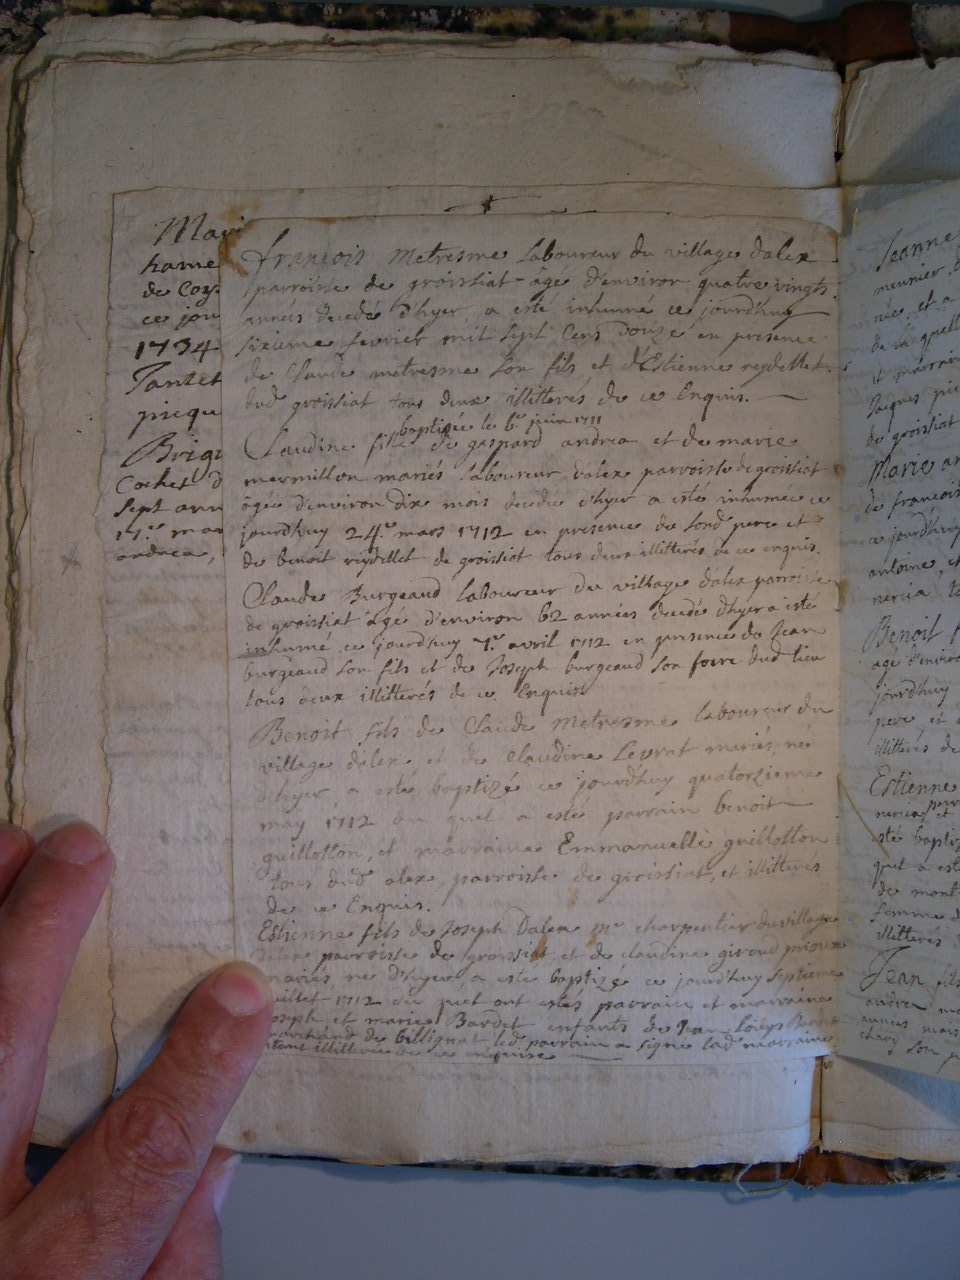 françois metresme laboureur du village dalex
parroisse de groissiat âgé d'environ quatre vingts
années decedé d'hyer a esté inhumé ce jourdhuy
sixieme fevrier mil sept cens douze en presence
de Claude metresme son fils et d'Estienne reydellet
dud groissiat tous deux illitterés de ce Enquis.
baptisée le 6e juin 1711
Claudine fille de gaspard andrea et de marie
mermillon mariés laboureur dalex parroisse de groissiat
âgée d'environ dix mois decedée d'hyer a esté inhumée ce
jourdhuy 24e mars 1712 en presence de sond pere et
de benoit reydellet de groissiat tous deux illitterés de ce enquis.
Claude Burgeaud laboureur du village dalex parroisse
de groissiat âgé d'environ 62 années decedé d'hyer a esté
inhumé ce jourdhuy 7e avril 1712 en presence de Jean
burgeaud son fils et de Joseph burgeaud son frere dud lieu
tous deux illitterés de ce Enquis
Benoit fils de Claude Metresme laboureur du
village dalex et de Claudine Levrat mariés né
d'hyer a esté baptizé ce jourdhuy quatorzieme
may 1712 au quel a esté parrain benoit
guillotton, et marraine Emmanuelle guillotton
tous dud alex, parroisse de groissiat, et illitterés
de ce Enquis.
Estienne fils de Joseph Dalex me charpentier du village
dalex parroisse de groissiat et de claudine giroud
mariés né d'hyer a esté baptizé ce jourdhuy septieme
juillet 1712 du quel ont estés parrain et marraine
Joseph et marie Bardet enfants de Jean Louys
marchand de billignat led parrain a signé lad marraine
illitterée de ce enquise
Mari
hame
de Coy
ce jour
1734
Jantet
picque
Brigi
Cochet d
sept ann
17e mar
andrea,
Jeanne
meunier
née, et a
de la quelle
et marrain
Jacques pic
de groissiat
Marie an
de françois
ce jourdhuy
antoine, et
nercia, te
Benoit f
agé d'enviro
jourdhuy
pere et
illitterés de
Estienne
nercia et
esté baptiz
quel a esté
de mont
femme d
illitterés
Jean fils
andrea
années